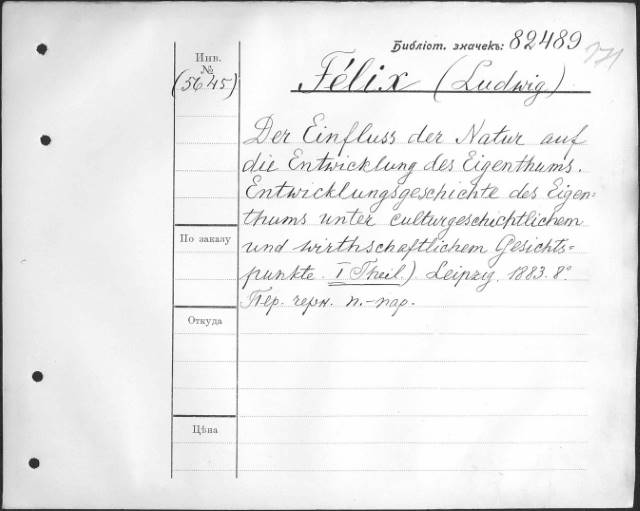 Библіот. значекъ: 82489
Инв.
№
(5645)
Félix (Ludwig)
Der Einfluss der Natur auf
die Entwicklung des Eigenthums.
Entwicklungsgeschichte des Eigen=
thums unter culturgeschichtlichem
und wirthschaftlichem Gesichts=
punkte. I Theil.) Leipzig. 1883. 8º
Пер. черн. п.-пар.
По заказу
Откуда
Цѣна